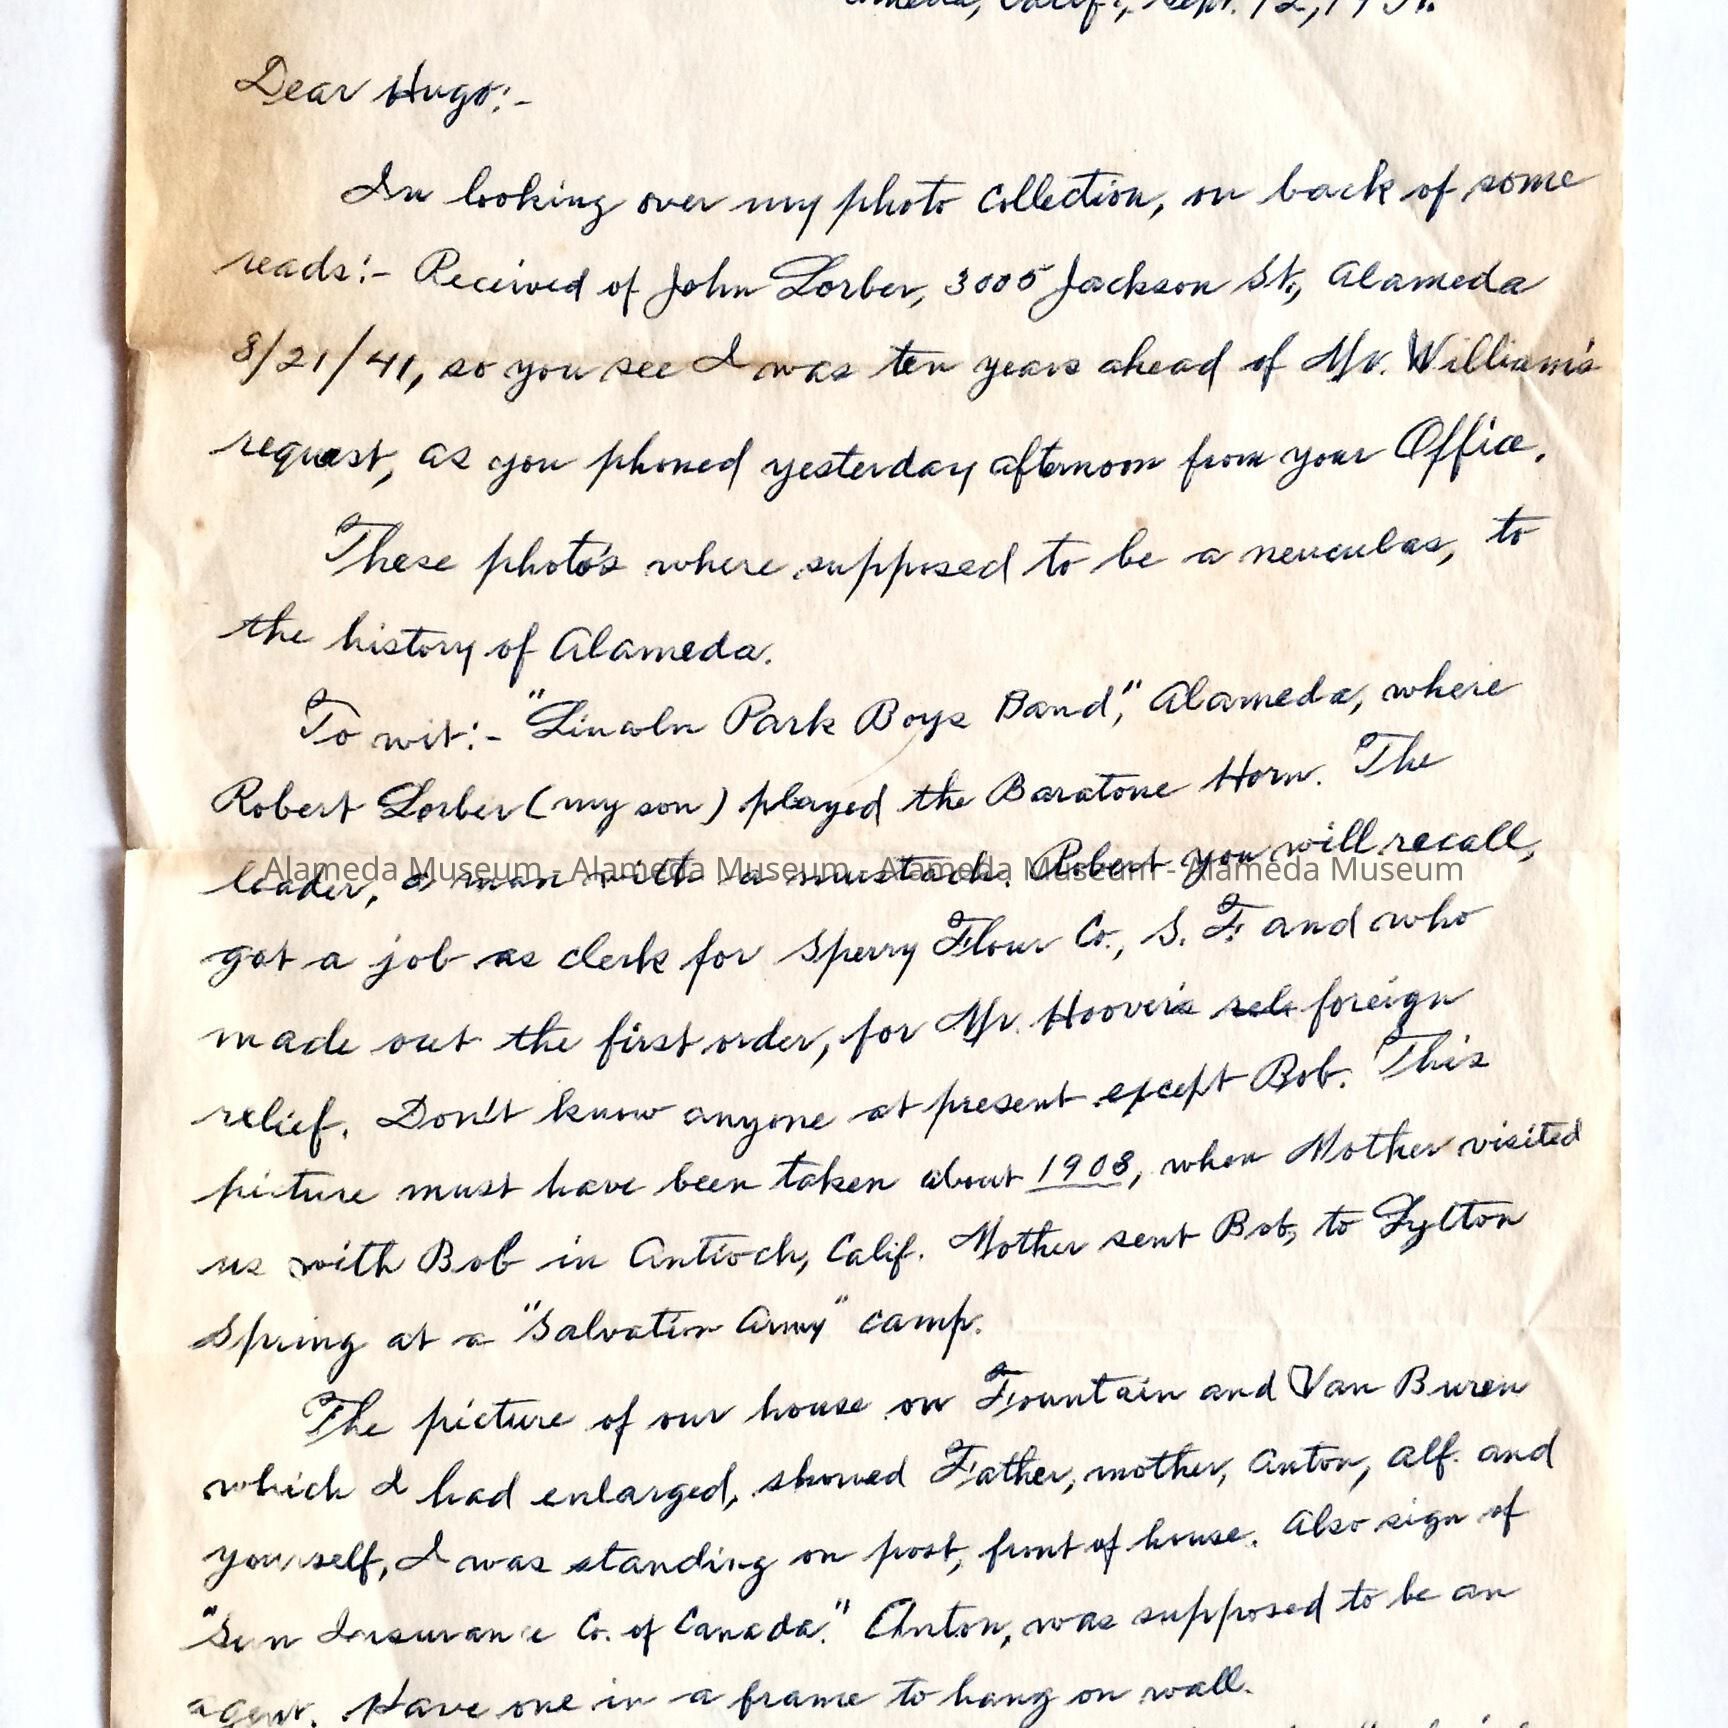 Calif., Sept. 12, 1951.
Dear Hugo:-
In looking over my photo collection, on back of some
reads:- Received of John Lorber, 3005 Jackson St., Alameda
8/21/41, so you see I was ten years ahead of Mr. William's
request, as you phoned yesterday afternoon from your Office.
These photo's where supposed to be a neuculas, to
the history of Alameda.
To wit:- "Lincoln Park Boys Band", Alameda, where
Robert Lorber (my son) played the Baratone Horn. The
leader, a man with a mustach. Robert you will recall,
Alameda Museum - Alameda Museum - Alameda Museum - Alameda Museum
got a job as clerk for Sperry Flour Co., S. F. and who
made out the first order, for Mr. Hoover's foreign
relief. Don't know anyone at present except Bob. This
picture must have been taken about 1908, when Mother visited
us with Bob in Antioch, Calif. Mother sent Bob, to Lytton
Spring at a "Salvation Army" camp.
The picture of our house on Fountain and Van Buren
which I had enlarged, showed Father, mother, Anton, Alf. and
yourself, I was standing on post, front of house. Also sign of
"Sun Insurance Co. of Canada." Anton, was supposed to be an
agent. Have one in a frame to hang on wall.